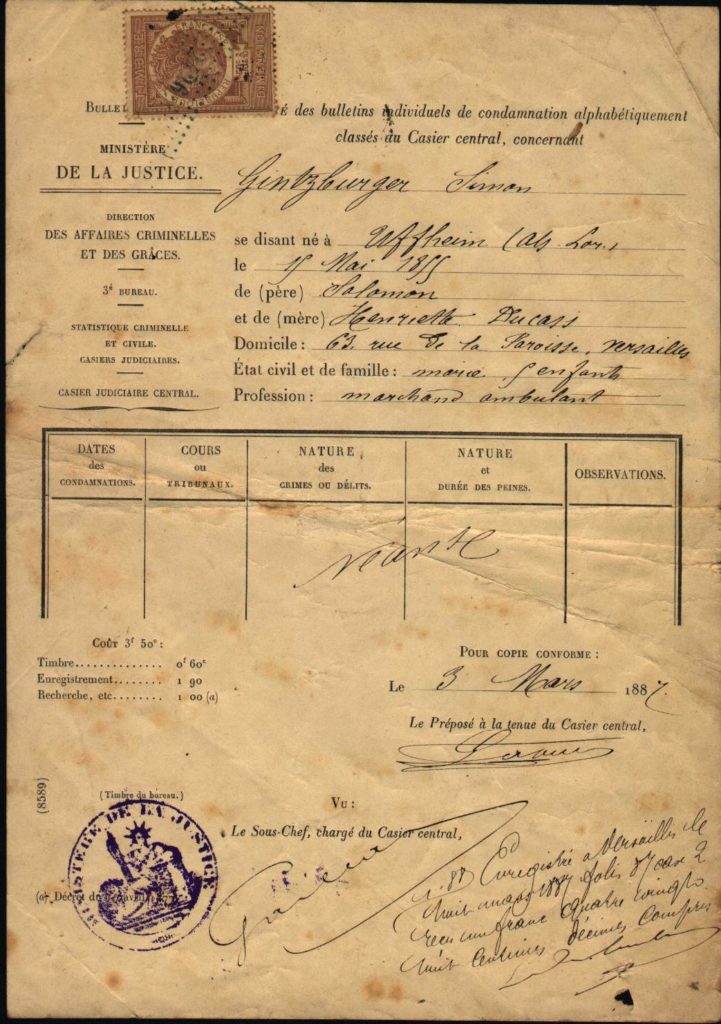 RÉPUBLIQUE FRANÇAISE
BULLE
É des bulletins individuels de condamnation alphabétiquement
classés du Casier central, concernant
MINISTÈRE
DE LA JUSTICE.
Gintzburger Simon
DIRECTION
DES AFFAIRES CRIMINELLES
ET DES GRÂCES.
3e BUREAU.
STATISTIQUE CRIMINELLE
ET CIVILE.
CASIERS JUDICIAIRES.
CASIER JUDICIAIRE CENTRAL.
se disant né à Uffheim (Als Lor.)
le 15 Mai 1855
de (père) Salomon
et de (mère) Henriette Ducass
Domicile : 63, rue de la Paroisse, Versailles
État civil et de famille : marié 5 enfants
Profession : marchand ambulant
DATES des CONDAMNATIONS.
COURS ou TRIBUNAUX.
NATURE des CRIMES OU DÉLITS.
NATURE et DURÉE DES PEINES.
OBSERVATIONS.
Néant
COÛT 3f 50c :
Timbre............. 0f 60c
Enregistrement...... 1 90
Recherche, etc........ 1 00 (a)
POUR COPIE CONFORME :
Le 3 Mars 1887.
Le Préposé à la tenue du Casier central,
(8589)
(Timbre du bureau.)
MINISTERE DE LA JUSTICE
VU :
Le Sous-Chef, chargé du Casier central,
(a) Décret du
Enregistré a Versailles le
huit mars 1887 folio 87 case 2
recu un franc quatre vingt
huit centimes décimes compris